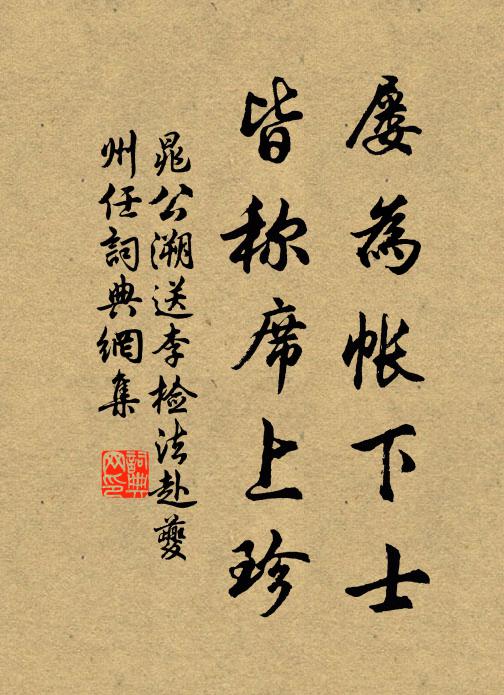 屡為帐下士
皆称席上珍
晁公溯送李检法赴夔
州任詞典網集
詞典
网印